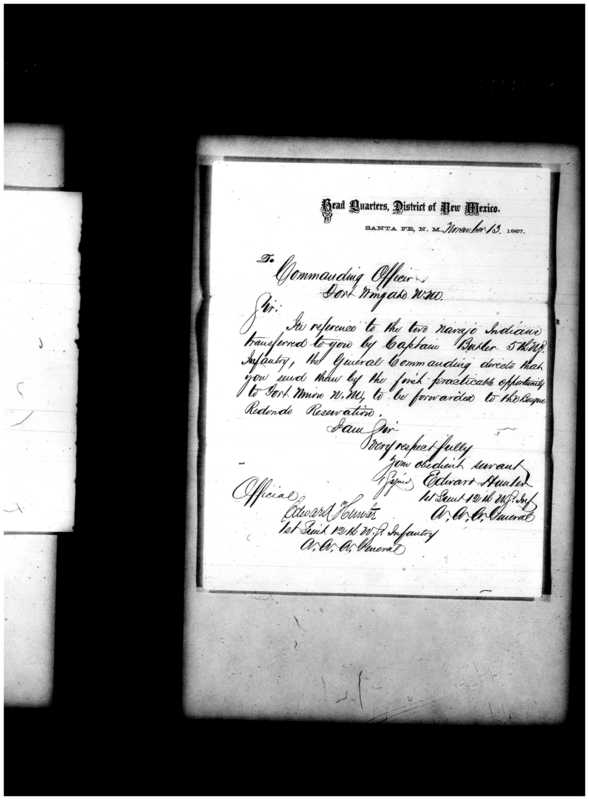 Head Quarters, District of New Mexico.
SANTA FE, N. M., November 13, 1867.
To
Commanding Officer
Fort Wingate N.M.
Sir:
In reference to the two navajo Indians
transferred to you by Captain Butler 5th U.S.
Infantry, the General Commanding directs that
you send them by the first practicable opportunity
to Fort Union N.M., to be forwarded to the Bosque
Redondo Reservation.
I am Sir
very respectfully
Your obedient servant
Signed Edward Hunter
1st Lieut 12th U.S. Inf
A. A. A. General
Official
Edward Hunter
1st Lieut 12th U.S. Infantry
A. A. A. General